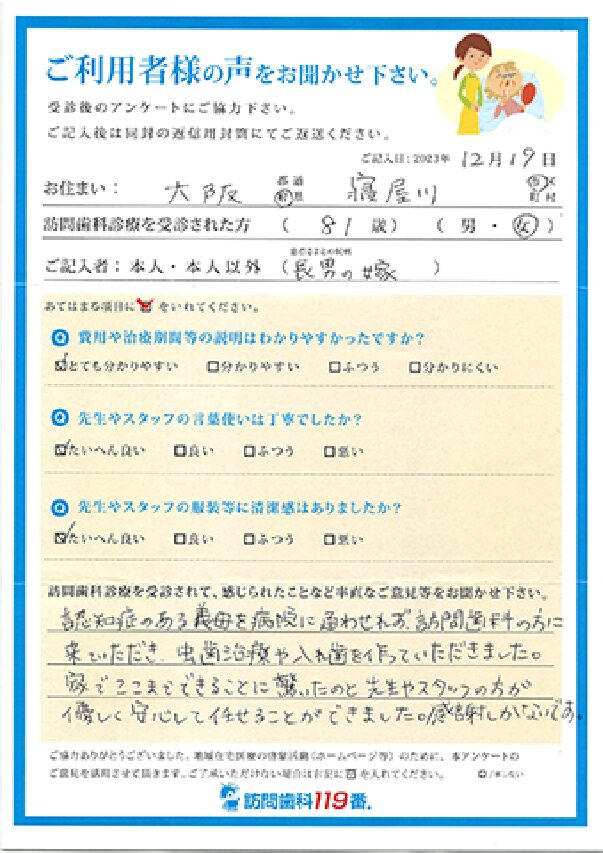 ご利用者様の声をお聞かせ下さい。
受診後のアンケートにご協力下さい。
ご記入後は同封の返信用封筒にてご返送ください。
ご記入日:2023年 12月19日
お住まい: 大阪 都道府県 寝屋川 市区町村
訪問歯科診療を受診された方 ( 81 歳) ( 男・女 )
ご記入者:本人・本人以外 (長男の嫁 )
あてはまる項目に をいれてください。
Q 費用や治療期間等の説明はわかりやすかったですか?
とても分かりやすい 分かりやすい ふつう 分かりにくい
Q 先生やスタッフの言葉使いは丁寧でしたか?
たいへん良い 良い ふつう 悪い
Q 先生やスタッフの服装等に清潔感はありましたか?
たいへん良い 良い ふつう 悪い
訪問歯科診療を受診されて、感じられたことなど率直なご意見等をお聞かせ下さい。
認知症のある義母を病院に通わせれず、訪問歯科の方に
来ていただき、虫歯治療や入れ歯を作っていただきました。
家でここまでできることに驚いたのと先生やスタッフの方が
優しく安心して任せることができました。感謝しかないです。
ご協力ありがとうございました。地域在宅医療の啓蒙活動(ホームページ等)のために、本アンケートの
ご意見を活用させて頂きます。ご了承いただけない場合は右記に を入れてください。
訪問歯科119番.